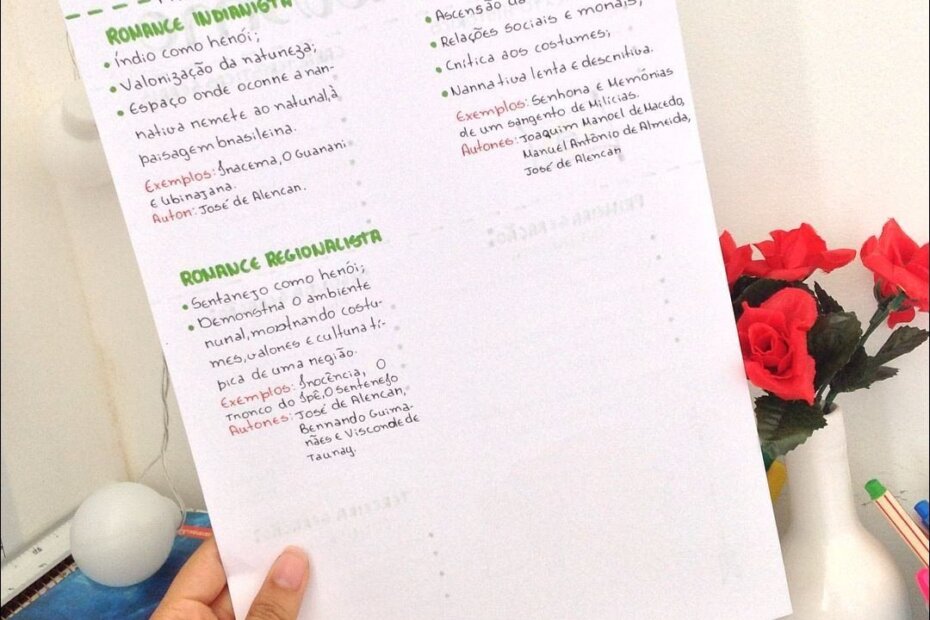 ROMANCE INDIANISTA
• Índio como herói;
• Valorização da natureza;
• Espaço onde ocorre a nar-
rativa remete ao natural, à
paisagem brasileira.
Exemplos: Iracema, O Guarani
e Ubirajara.
Autor: José de Alencar.
ROMANCE REGIONALISTA
• Sertanejo como herói;
• Demonstra o ambiente
rural, mostrando costu-
mes, valores e cultura tí-
pica de uma região.
Exemplos: Inocência, O
Tronco do Ipê, O Sertenejo
Autores: José de Alencar,
Bernardo Guima-
rães e Visconde de
Taunay.
• Ascensão da
• Relações sociais e morais;
• Crítica aos costumes;
• Narrativa lenta e descritiva.
Exemplos: Senhora e Memórias
de um sargento de Milícias.
Autores: Joaquim Manoel de Macedo,
Manuel Antônio de Almeida,
José de Alencar